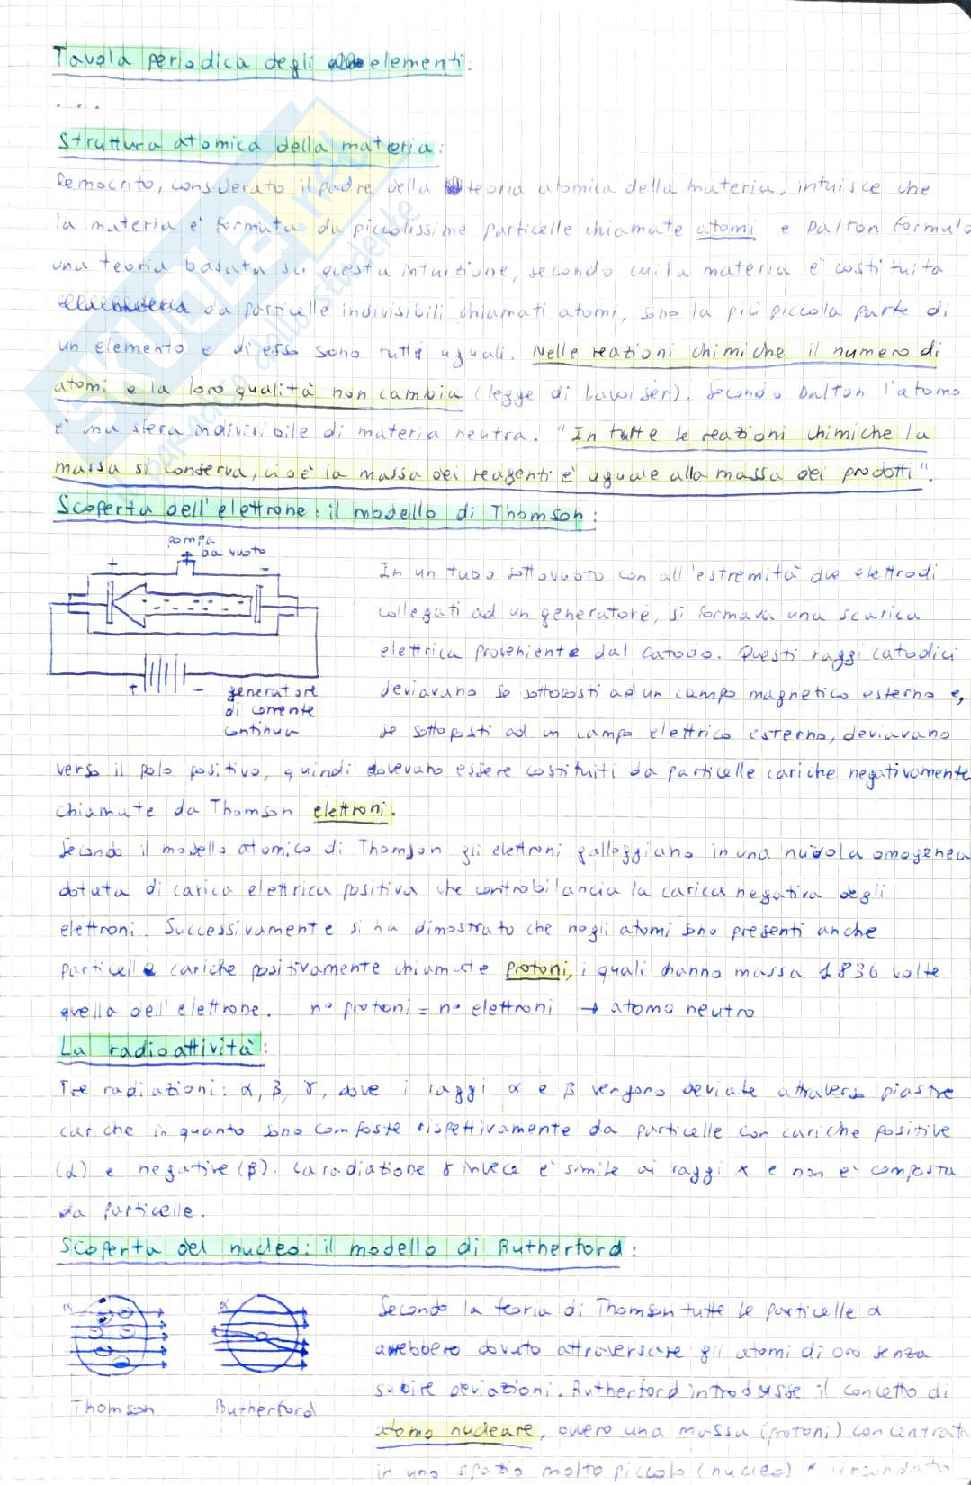 Tavola periodica degli elementi.
....
Struttura atomica della materia:
Democrito, considerato il padre della teoria atomica della materia, intuisce che
la materia è formata da piccolissime particelle chiamate atomi e Dalton formula
una teoria basata su questa intuizione, secondo cui la materia è costituita
da particelle indivisibili chiamati atomi, sono la più piccola parte di
un elemento e di esso sono tutti uguali. Nelle reazioni chimiche il numero di
atomi e la loro qualità non cambia (legge di Lavoiser). Secondo Dalton l'atomo
è una sfera indivisibile di materia neutra. "In tutte le reazioni chimiche la
massa si conserva, cioè la massa dei reagenti è uguale alla massa dei prodotti".
Scoperta dell'elettrone: il modello di Thomson:
pompa
da vuoto
+ -
+ -
generatore
di corrente
continua
In un tubo sottovuoto con all'estremità due elettrodi
collegati ad un generatore, si formava una scarica
elettrica proveniente dal catodo. Questi raggi catodici
deviavano se sottoposti ad un campo magnetico esterno e,
se sottoposti ad un campo elettrico esterno, deviavano
verso il polo positivo, quindi dovevano essere costituiti da particelle cariche negativamente
chiamate da Thomson elettroni.
Secondo il modello atomico di Thomson gli elettroni galleggiano in una nuvola omogenea
dotata di carica elettrica positiva che controbilancia la carica negativa degli
elettroni. Successivamente si ha dimostrato che negli atomi sono presenti anche
particelle cariche positivamente chiamate protoni, i quali hanno massa 1836 volte
quella dell'elettrone. n° protoni = n° elettroni → atomo neutro
La radioattività:
Tre radiazioni: α, β, γ, dove i raggi α e β vengono deviate attraverso piastre
cariche in quanto sono composte rispettivamente da particelle con cariche positive
(α) e negative (β). La radiazione γ invece è simile ai raggi x e non è composta
da particelle.
Scoperta del nucleo: il modello di Rutherford:
α α
Thomson Rutherford
Secondo la teoria di Thomson tutte le particelle α
avrebbero dovuto attraversare gli atomi di oro senza
subire deviazioni. Rutherford introdusse il concetto di
atomo nucleare, ovvero una massa (protoni) concentrata
in uno spazio molto piccolo (nucleo) circondato